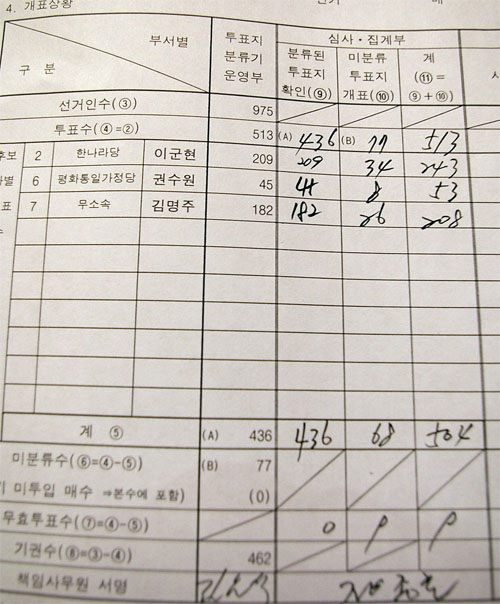 4. 개표상황
부서별
구 분
투표지
분류기
운영부
심사·집계부
분류된
투표지
확인(⑨)
미분류
투표지
개표(⑩)
계
(⑪=
⑨+⑩)
선거인수(③) 975
투표수(④=②) 513 (A) 436 (B) 77 513
2 한나라당 이군현 209 209 34 243
6 평화통일가정당 권수원 45 8 53
7 무소속 김명주 182 182 26 208
계 ⑤ (A) 436 436 68 504
미분류수(⑥=④-⑤) (B) 77
미투입 매수 ⇒본수에 포함) (0)
무효투표수(⑦=④-⑤) 0 9 9
기권수(⑧=③-④) 462
책임사무원 서명